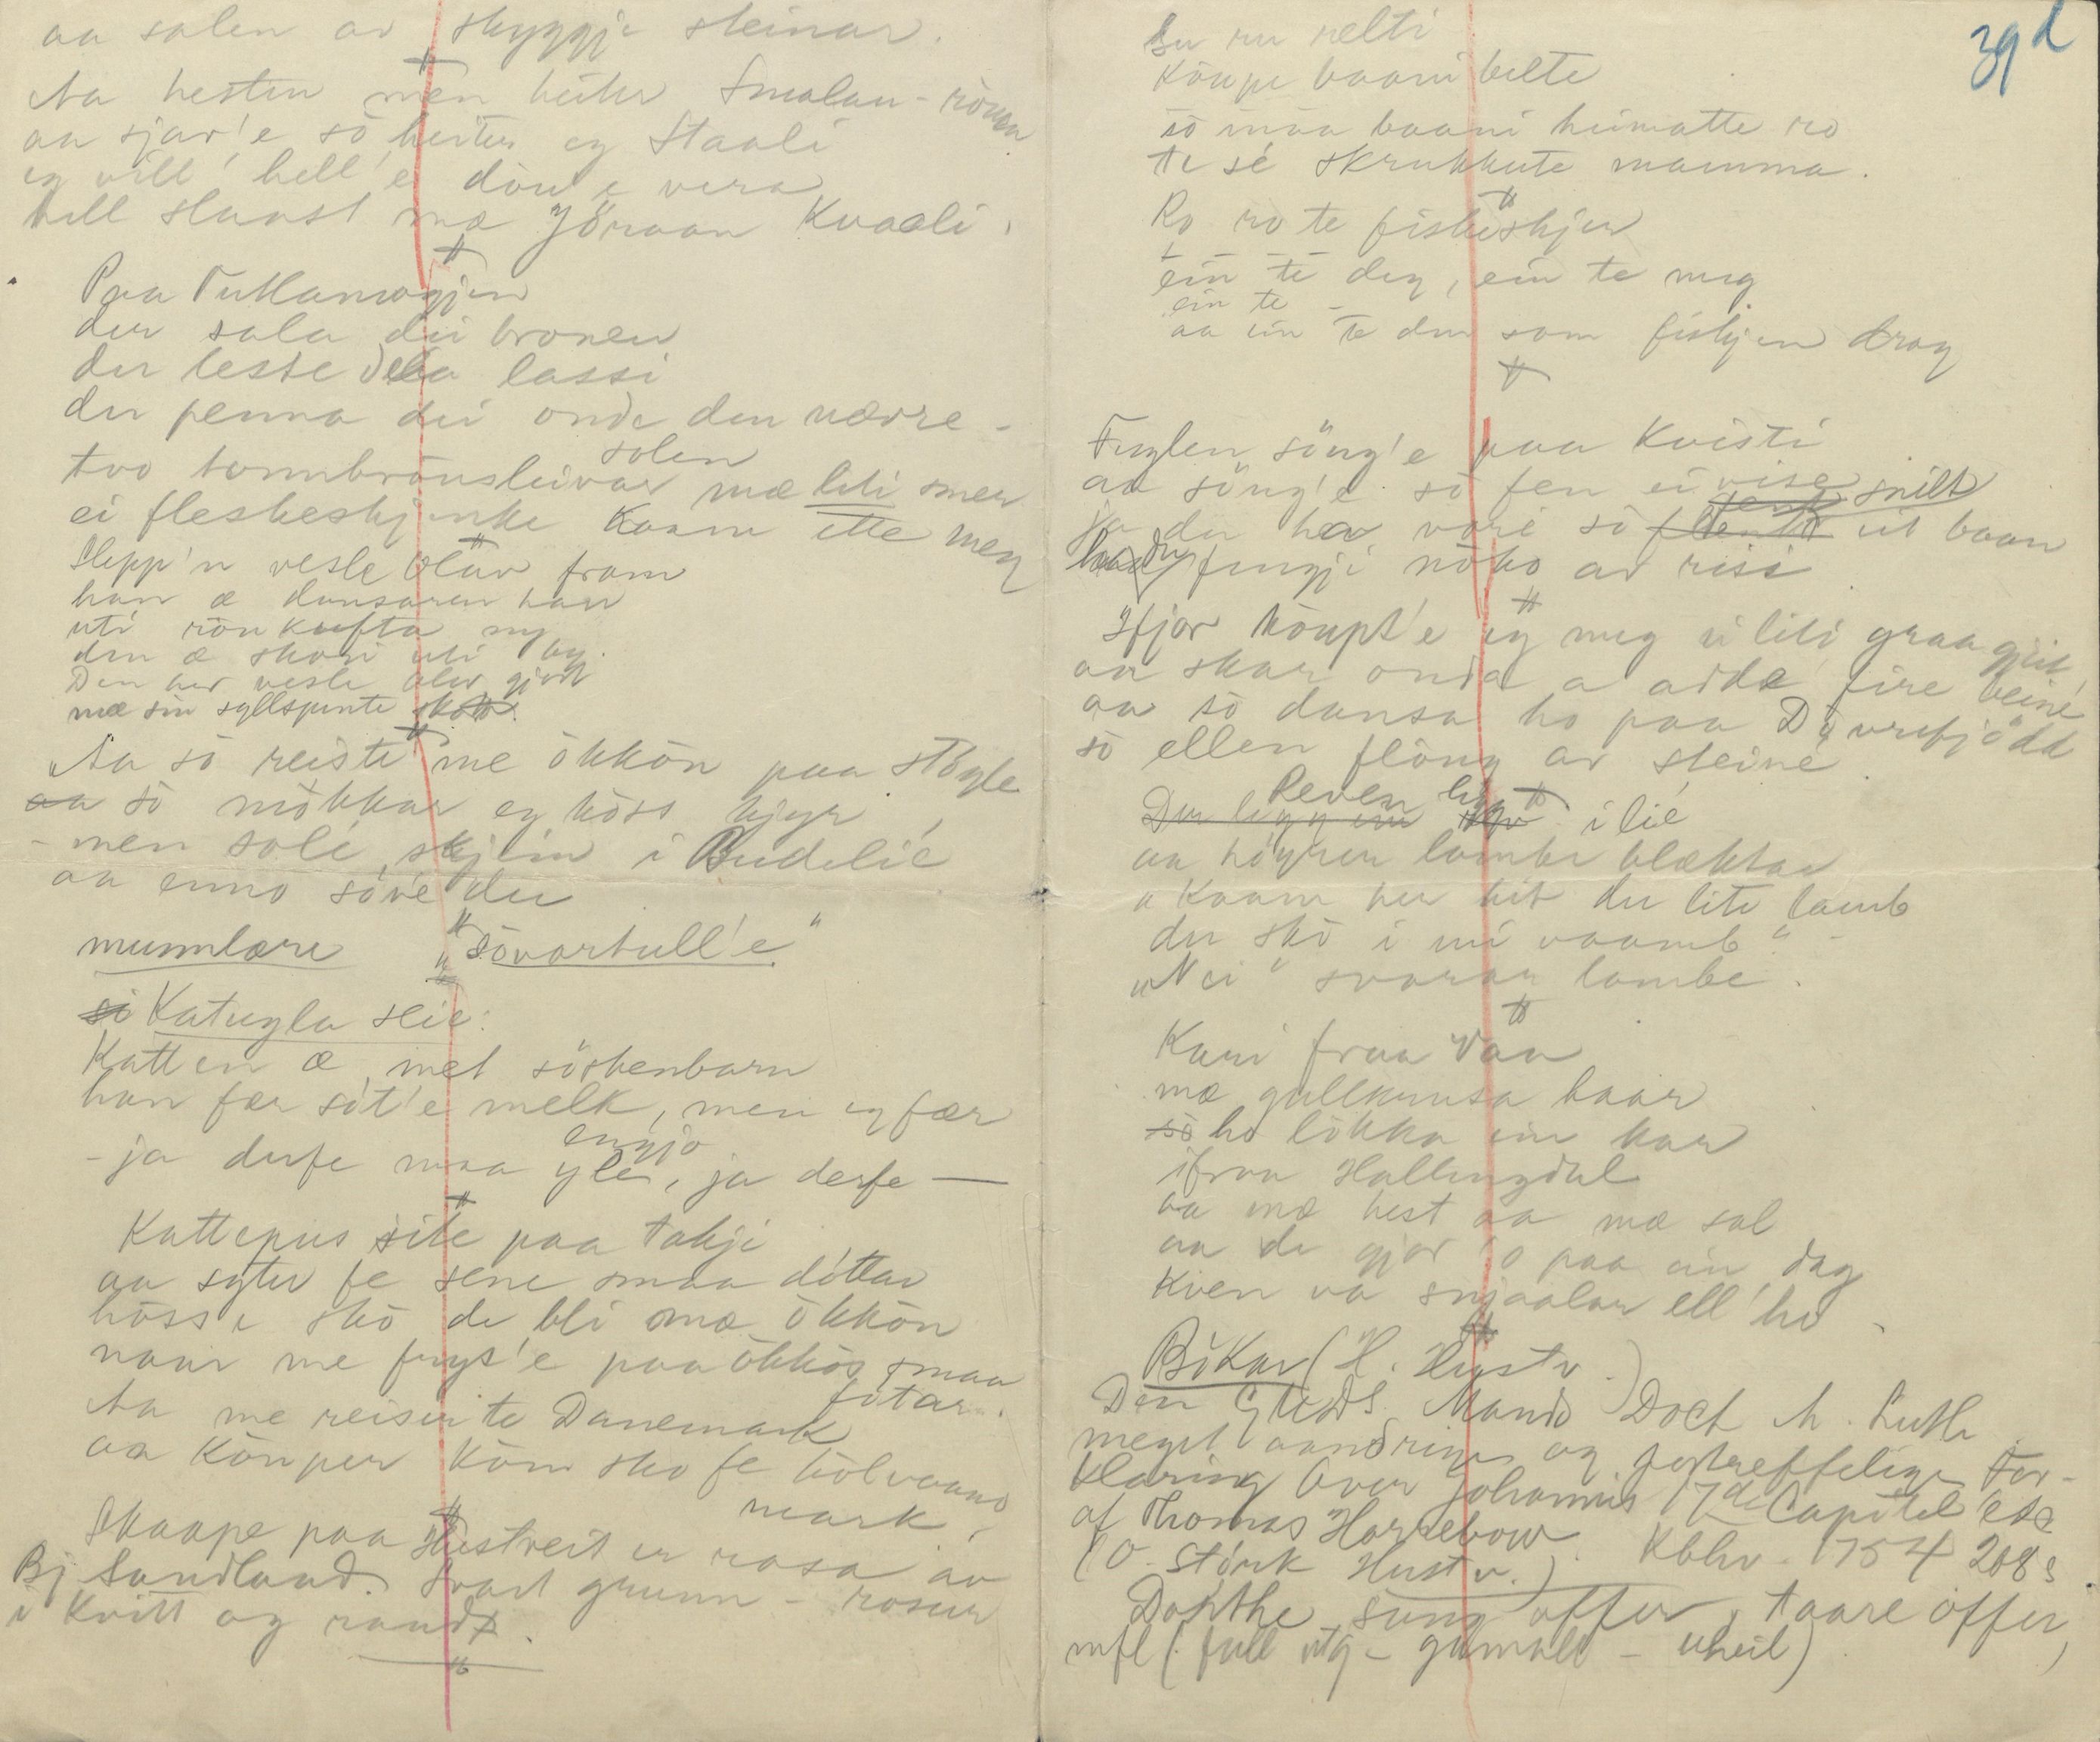 aa salen av skyggje steinar.
Aa hesten men heiter Smolan-rönen
aa sjav'e sò heiter eg Staali
eg vill' hell'e döue vera
hell slaast mæ Jöraan Kvaali.
Paa Tuttanvogjen
der sala dei bronen
der leste dei lassi
der penna dei onde den nævre -
tvo tonnbrönsleivar mæ liti smer
solen
ei fleskeskjinke Kaam ette meg
Slepp'n vesle Olav fram
han æ dansaren han
uti rön kufta ny
den æ skori uti by.
Den har vesle olav gjort
mæ sin syllspente sko.
Aa sò reiste me ökkön paa Stögle
aa sò mökkar eg höss kjyr,
- men solé skjein i Budelié
aa enno sòve du
munnlære "sövartull'e"
sò Katugla sei'e:
Katten æ met söskenbarn
han fær söt'e melk, men eg fær
engjo
- ja derfe maa yle, ja derfe —
Kattepus site paa takji
aa syter fe sene smaa döttar
höss'e skò de bli mæ ökkön
naar me frys'e paa ökkös smaa
fötar.
Aa me reiser te Danemark
aa Köuper Köm sko fe tolvaans
mark.
Skaape paa Hustveit er rosa av
Bj Sandland. Svart grunn - rosur
i Kvitt og raudt.
39d
Su ru relti
Köupe baani belte
sò maa baani heimatte ro
te sé skrukkute mamma.
Ro ro te fiskeskjer
ein te deg, ein te meg
ein te -
aa ein te den som fiskjen drog
Fuglen söng'e paa Kvisti
aa söng'e sò fen ei vise
ja du har vore sò flenk snilt eit baan
du fengji nöko av risi
Ifjor köupt'e eg meg ei liti graa gjeit
aa skar onda a adde fire beiné
aa sò dansa ho paa Dyvrefjödd
sò ellen flöug av steiné.
Der ligg ein Reven ligg i lié
aa höyrer lambe blækta
"Kaam her hit du lite lamb
du skò i mi vaamb"
"Nei" svarar lambe.
Kari fraa Vaa
mæ gullkrusa haar
sò ho lökka ein kar
ifraa Hallingdal
aa mæ hest aa mæ sal
aa de gjor 'o paa ein dag
Kven va snjaalar ell' ho -
Bökar (H. Hustv.)
Den Guds Mands Doct M. Luth.
meget aandrige og fortreffelige For-
klaring over Johannis 17de Capitel etc
af Thomas Horrebow. Kbhv. 1754 208 s
(O. Störk Hustv.)
Dorthe sung offer, taare offer,
mfl (full utg - gamall - uheil)